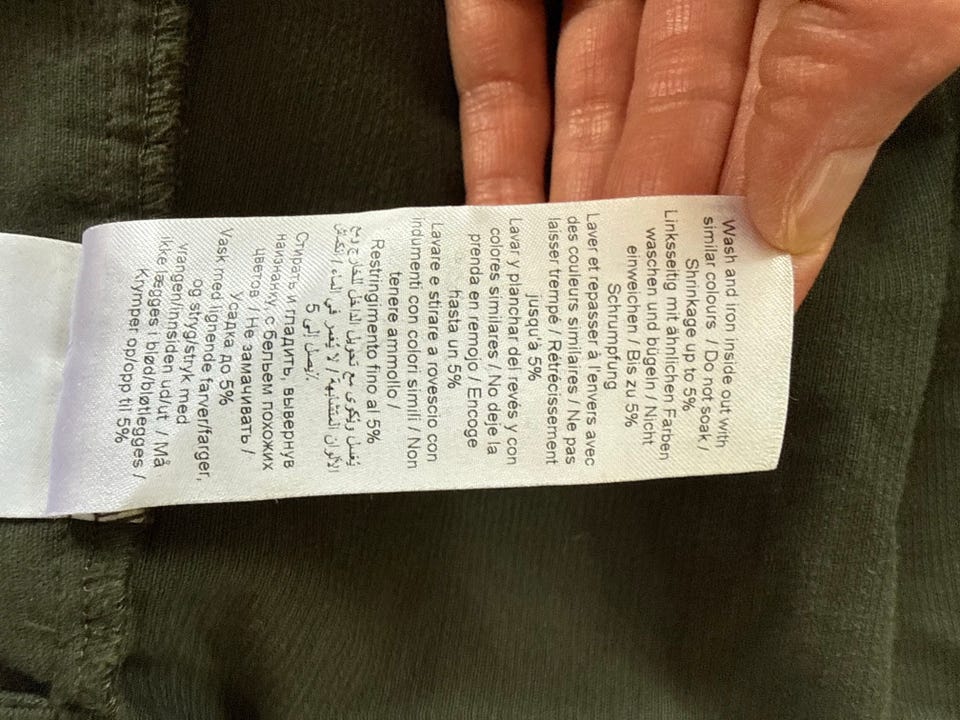 Wash and iron inside out with
similar colours / Do not soak /
Shrinkage up to 5%
Linksseitig mit ähnlichen Farben
waschen und bügeln / Nicht
einweichen / Bis zu 5%
Schrumpfung
Laver et repasser à l'envers avec
des couleurs similaires / Ne pas
laisser trempé / Rétrécissement
jusqu'à 5%
Lavar y planchar del revés y con
colores similares / No deje la
prenda en remojo / Encoge
hasta un 5%
Lavare e stirare a rovescio con
indumenti con colori simili / Non
tenere ammollo /
Restringimento fino al 5%
يُغسل ويُكوى مع تحويل الداخل للخارج ومع
الألوان المتشابهة / لا يُغمر في الماء / إنكمش
يصل إلى 5٪
Стирать и гладить, вывернув
наизнанку, с бельем похожих
цветов / Не замачивать /
Усадка до 5%
Vask med lignende farver/farger,
og stryg/stryk med
vrangen/innsiden ud/ut / Må
ikke lægges i blød/bløtlegges /
Krymper op/opp til 5%